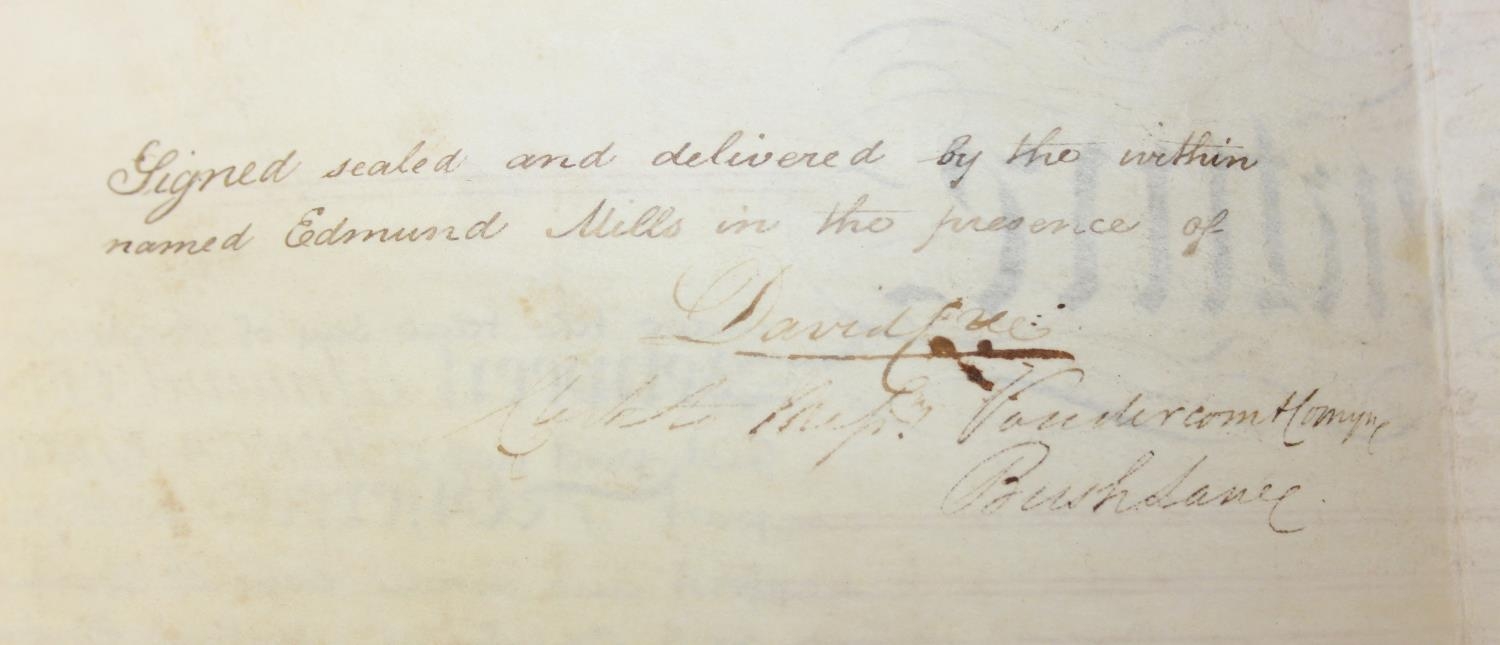 Signed sealed and delivered by the within
named Edmund Mills in the presence of
David
Clerk to Messrs. Vandercom & Comyn
Bush Lane